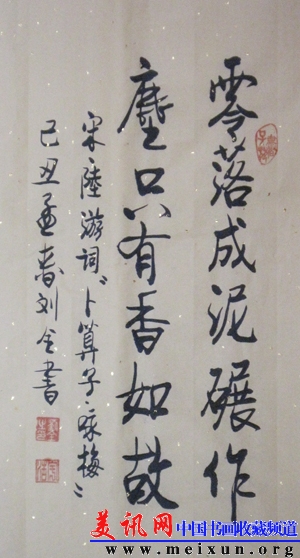 零落成泥碾作
塵只有香如故
宋陸游詞卜算子咏梅
己丑孟春刘全書
美讯网 中国书画收藏频道
www.meixun.org